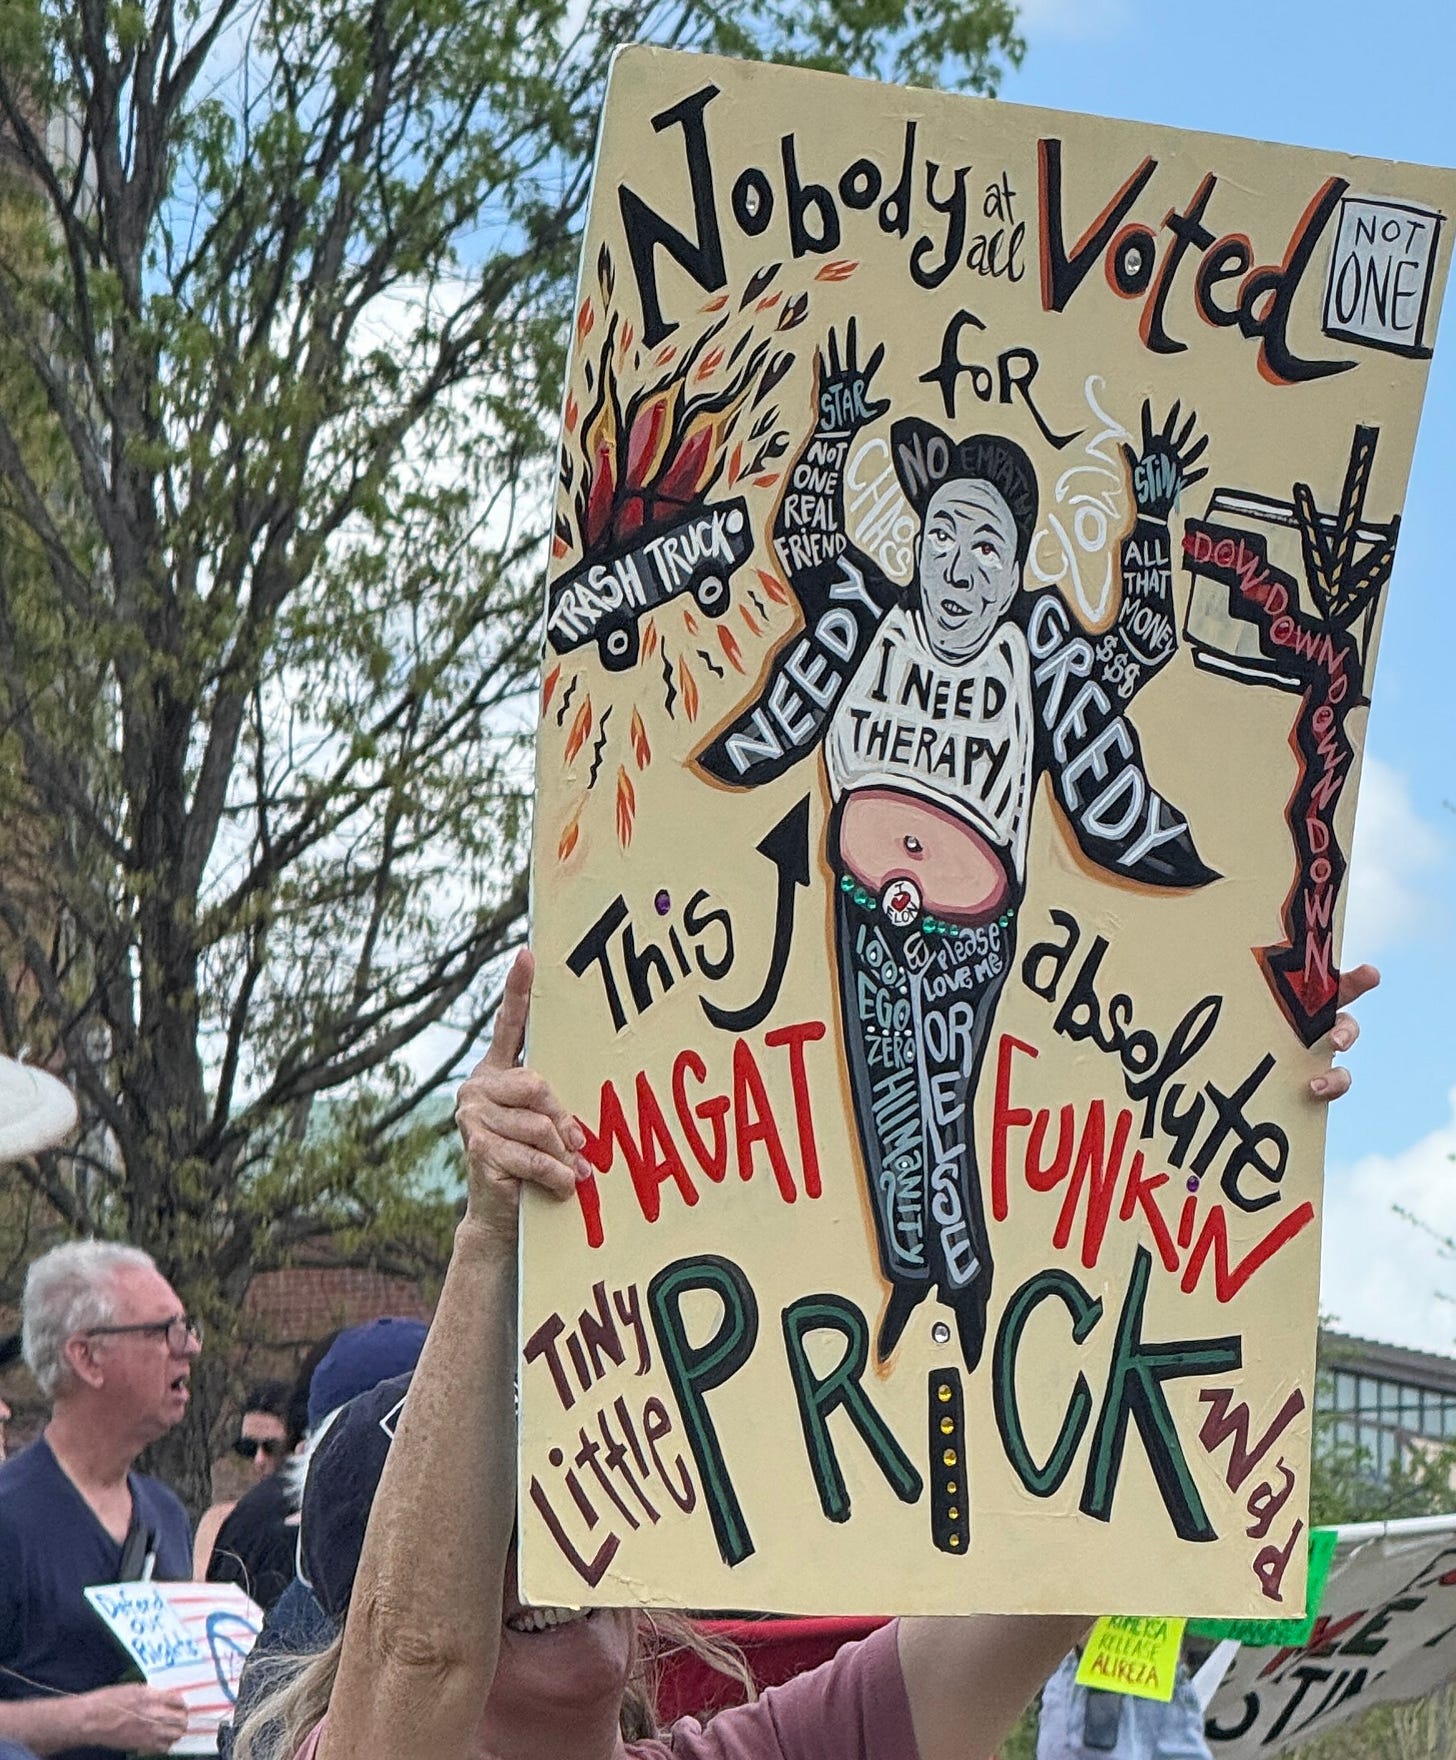 Nobody at all Voted
NOT
ONE
for
STAR
NOT
ONE
REAL
FRIEND
CHAOS
NO EMPATHY
CLOWN
STINK
ALL
THAT
MONEY
$$$
TRASH TRUCK
DOWN DOWN DOWN DOWN DOWN
NEEDY
GREEDY
I NEED
THERAPY
This
I ♥
ELON
lol
EGO
ZERO
HUMANITY
please
LOVE ME
OR
ELSE
absolute
MAGAT
FUNKIN
TINY
LittLe
PRiCK
Wad
Defend
our
Rights
RÜMEYSA
RELEASE
ALIREZA